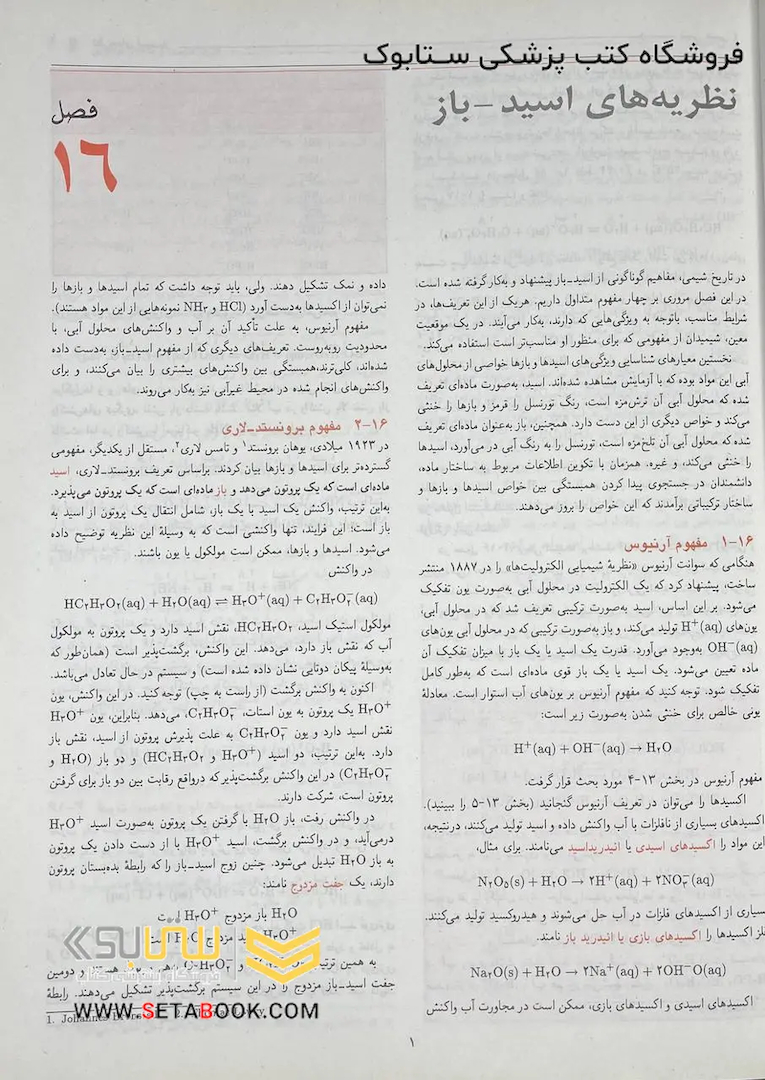 فروشگاه کتب پزشکی ستابوک
نظریه‌های اسید – باز
فصل
۱۶
در تاریخ شیمی، مفاهیم گوناگونی از اسید ـ باز پیشنهاد و به‌کار گرفته شده است.
در این فصل مروری بر چهار مفهوم متداول داریم. هریک از این تعریف‌ها، در
شرایط مناسب، باتوجه به ویژگی‌هایی که دارند، به‌کار می‌آیند. در یک موقعیت
معین، شیمیدان از مفهومی که برای منظور او مناسب‌تر است استفاده می‌کند.
نخستین معیارهای شناسایی ویژگی‌های اسیدها و بازها خواصی از محلول‌های
آبی این مواد بوده که با آزمایش مشاهده شده‌اند. اسید، به‌صورت ماده‌ای تعریف
شده که محلول آبی آن ترش‌مزه است، رنگ تورنسل را قرمز و بازها را خنثی
می‌کند و خواص دیگری از این دست دارد. همچنین، باز به‌عنوان ماده‌ای تعریف
شده که محلول آبی آن تلخ‌مزه است، تورنسل را به رنگ آبی در می‌آورد، اسیدها
را خنثی می‌کند، و غیره. همزمان با تکوین اطلاعات مربوط به ساختار ماده،
دانشمندان در جستجوی پیدا کردن همبستگی بین خواص اسیدها و بازها و
ساختار ترکیباتی برآمدند که این خواص را بروز می‌دهند.
۱۶-۱ مفهوم آرنیوس
هنگامی که سوانت آرنیوس «نظریهٔ شیمیایی الکترولیت‌ها» را در ۱۸۸۷ منتشر
ساخت، پیشنهاد کرد که یک الکترولیت در محلول آبی به‌صورت یون تفکیک
می‌شود. بر این اساس، اسید به‌صورت ترکیبی تعریف شد که در محلول آبی،
یون‌های H⁺(aq) تولید می‌کند، و باز به‌صورت ترکیبی که در محلول آبی یون‌های
OH⁻(aq) به‌وجود می‌آورد. قدرت یک اسید یا یک باز با میزان تفکیک آن
ماده تعیین می‌شود. یک اسید یا یک باز قوی ماده‌ای است که به‌طور کامل
تفکیک شود. توجه کنید که مفهوم آرنیوس بر یون‌های آب استوار است. معادلهٔ
یونی خالص برای خنثی شدن به‌صورت زیر است:
H⁺(aq) + OH⁻(aq) → H۲O
مفهوم آرنیوس در بخش ۱۳-۴ مورد بحث قرار گرفت.
اکسیدها را می‌توان در تعریف آرنیوس گنجانید (بخش ۱۳-۵ را ببینید).
اکسیدهای بسیاری از نافلزات با آب واکنش داده و اسید تولید می‌کنند، درنتیجه،
این مواد را اکسیدهای اسیدی یا انیدریداسید می‌نامند. برای مثال،
N۲O۵(s) + H۲O → ۲H⁺(aq) + ۲NO۳⁻(aq)
سیاری از اکسیدهای فلزات در آب حل می‌شوند و هیدروکسید تولید می‌کنند.
لز اکسیدها را اکسیدهای بازی یا انیدرید باز نامند.
Na۲O(s) + H۲O → ۲Na⁺(aq) + ۲OH⁻O(aq)
اکسیدهای اسیدی و اکسیدهای بازی، ممکن است در مجاورت آب واکنش
داده و نمک تشکیل دهند. ولی، باید توجه داشت که تمام اسیدها و بازها را
نمی‌توان از اکسیدها به‌دست آورد (HCl و NH۳ نمونه‌هایی از این مواد هستند).
مفهوم آرنیوس، به علت تأکید آن بر آب و واکنش‌های محلول آبی، با
محدودیت روبه‌روست. تعریف‌های دیگری که از مفهوم اسید-باز، به‌دست داده
شده‌اند، کلی‌ترند، همبستگی بین واکنش‌های بیشتری را بیان می‌کنند، و برای
واکنش‌های انجام شده در محیط غیرآبی نیز به‌کار می‌روند.
۱۶-۲ مفهوم برونستد-لاری
در ۱۹۲۳ میلادی، یوهان برونستد¹ و تامس لاری²، مستقل از یکدیگر، مفهومی
گسترده‌تر برای اسیدها و بازها بیان کردند. براساس تعریف برونستد-لاری، اسید
ماده‌ای است که یک پروتون می‌دهد و باز ماده‌ای است که یک پروتون می‌پذیرد.
به‌این ترتیب، واکنش یک اسید با یک باز، شامل انتقال یک پروتون از اسید به
باز است؛ این فرایند، تنها واکنشی است که به وسیلهٔ این نظریه توضیح داده
می‌شود. اسیدها و بازها، ممکن است مولکول یا یون باشند.
در واکنش
HC۲H۳O۲(aq) + H۲O(aq) ⇌ H۳O⁺(aq) + C۲H۳O۲⁻(aq)
مولکول استیک اسید، HC۲H۳O۲، نقش اسید دارد و یک پروتون به مولکول
آب که نقش باز دارد، می‌دهد. این واکنش، برگشت‌پذیر است (همان‌طور که
به‌وسیلهٔ پیکان دوتایی نشان داده شده است) و سیستم در حال تعادل می‌باشد.
اکنون به واکنش برگشت (از راست به چپ) توجه کنید. در این واکنش، یون
H۳O⁺ یک پروتون به یون استات، C۲H۳O۲⁻، می‌دهد. بنابراین، یون H۳O⁺
نقش اسید دارد و یون C۲H۳O۲⁻ به علت پذیرش پروتون از اسید، نقش باز
دارد. به‌این ترتیب، دو اسید (H۳O⁺ و HC۲H۳O۲) و دو باز (H۲O و
C۲H۳O۲⁻) در این واکنش برگشت‌پذیر که درواقع رقابت بین دو باز برای گرفتن
پروتون است، شرکت دارند.
در واکنش رفت، باز H۲O با گرفتن یک پروتون به‌صورت اسید H۳O⁺
درمی‌آید، و در واکنش برگشت، اسید H۳O⁺ با از دست دادن یک پروتون
به باز H۲O تبدیل می‌شود. چنین زوج اسید-باز را که رابطهٔ بده‌بستان پروتون
دارند، یک جفت مزدوج نامند:
H۲O باز مزدوج H۳O⁺ است
H۳O⁺ اسید مزدوج H۲O است
به همین ترتیب و C۲H۳O۲⁻ هستند و دومین
جفت اسید-باز مزدوج را در این سیستم برگشت‌پذیر تشکیل می‌دهند. رابطهٔ
ستابوک
WWW.SETABOOK.COM
1. Johannes
۱